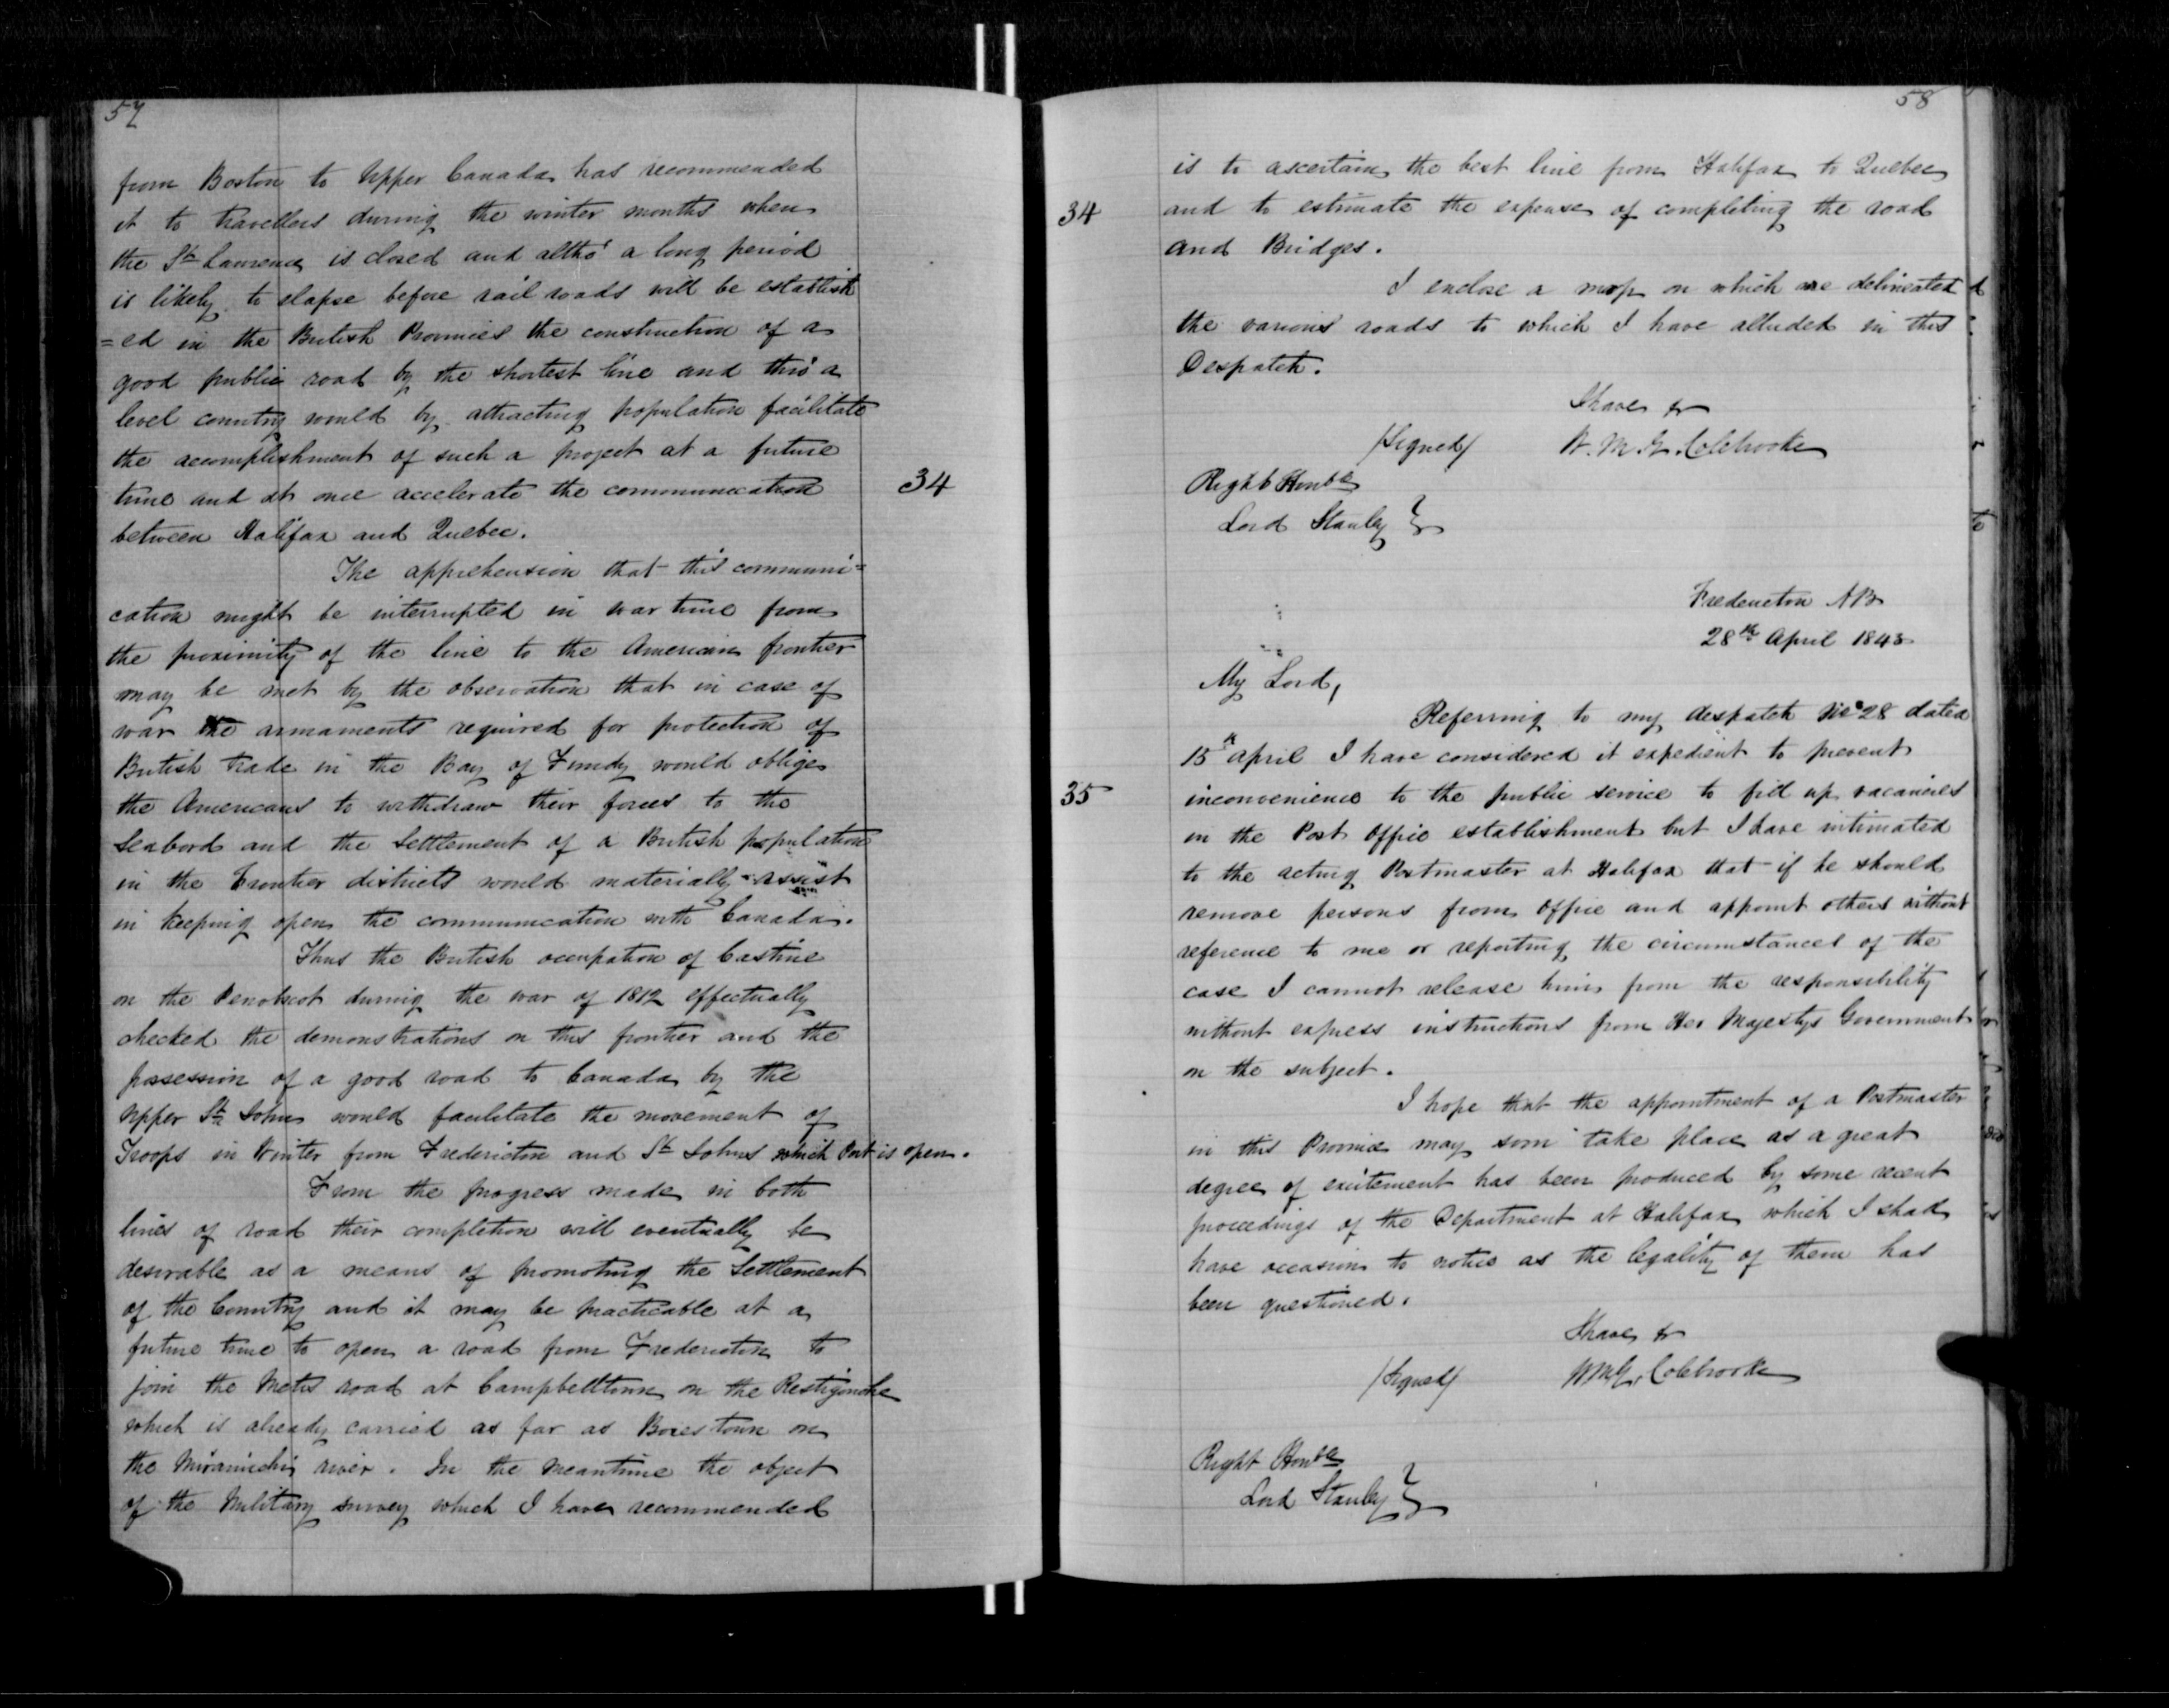 57
from Boston to Upper Canada has recommended
it to travellers during the winter months when
the St Lawrence is closed and altho' a long period
is likely to elapse before rail roads will be establish
=ed in the British Provinces the construction of a
good public road by the shortest line and thro' a
level country would by attracting population facilitate
the accomplishment of such a project at a future
time and at once accelerate the communication
34
between Halifax and Quebec.
The apprehension that this communi=
cation might be interrupted in war time from
the proximity of the line to the American frontier
may be met by the observation that in case of
war the armaments required for protection of
British trade in the Bay of Fundy would oblige
the Americans to withdraw their forces to the
Seabord and the Settlement of a British population
in the frontier districts would materially assist
in keeping open the communication with Canada.
Thus the British occupation of Castine
on the Penobscot during the war of 1812 effectually
checked the demonstrations on this frontier and the
possession of a good road to Canada by the
Upper St John would facilitate the movement of
Troops in Winter from Fredericton and St Johns which Port is open.
From the progress made in both
lines of road their completion will eventually be
desirable as a means of promoting the Settlement
of the Country and it may be practicable at a
future time to open a road from Fredericton to
join the Metis road at Campbelltown on the Restigouche
which is already carried as far as Boiestown on
the Miramichi river. In the meantime the object
of the Military survey which I have recommended
58
is to ascertain the best line from Halifax to Quebec
34
and to estimate the expense of completing the road
and Bridges.
I enclose a map on which are delineated
the various roads to which I have alluded in this
Despatch.
I have &c
/Signed/ W. M. G. Colebrooke
Right Honble
Lord Stanley }
Fredericton NB
28th April 1843
My Lord,
Referring to my despatch No 28 dated
15th April I have considered it expedient to prevent
35
inconvenience to the public service to fill up vacancies
in the Post Office establishment but I have intimated
to the acting Postmaster at Halifax that if he should
remove persons from office and appoint others without
reference to me or reporting the circumstances of the
case I cannot release him from the responsibility
without express instructions from Her Majestys Government
on the subject.
I hope that the appointment of a Postmaster
in this Province may soon take place as a great
degree of excitement has been produced by some recent
proceedings of the Department at Halifax which I shall
have occasion to notice as the legality of them has
been questioned.
I have &c
/Signed/ W M G. Colebrooke
Right Honble
Lord Stanley }